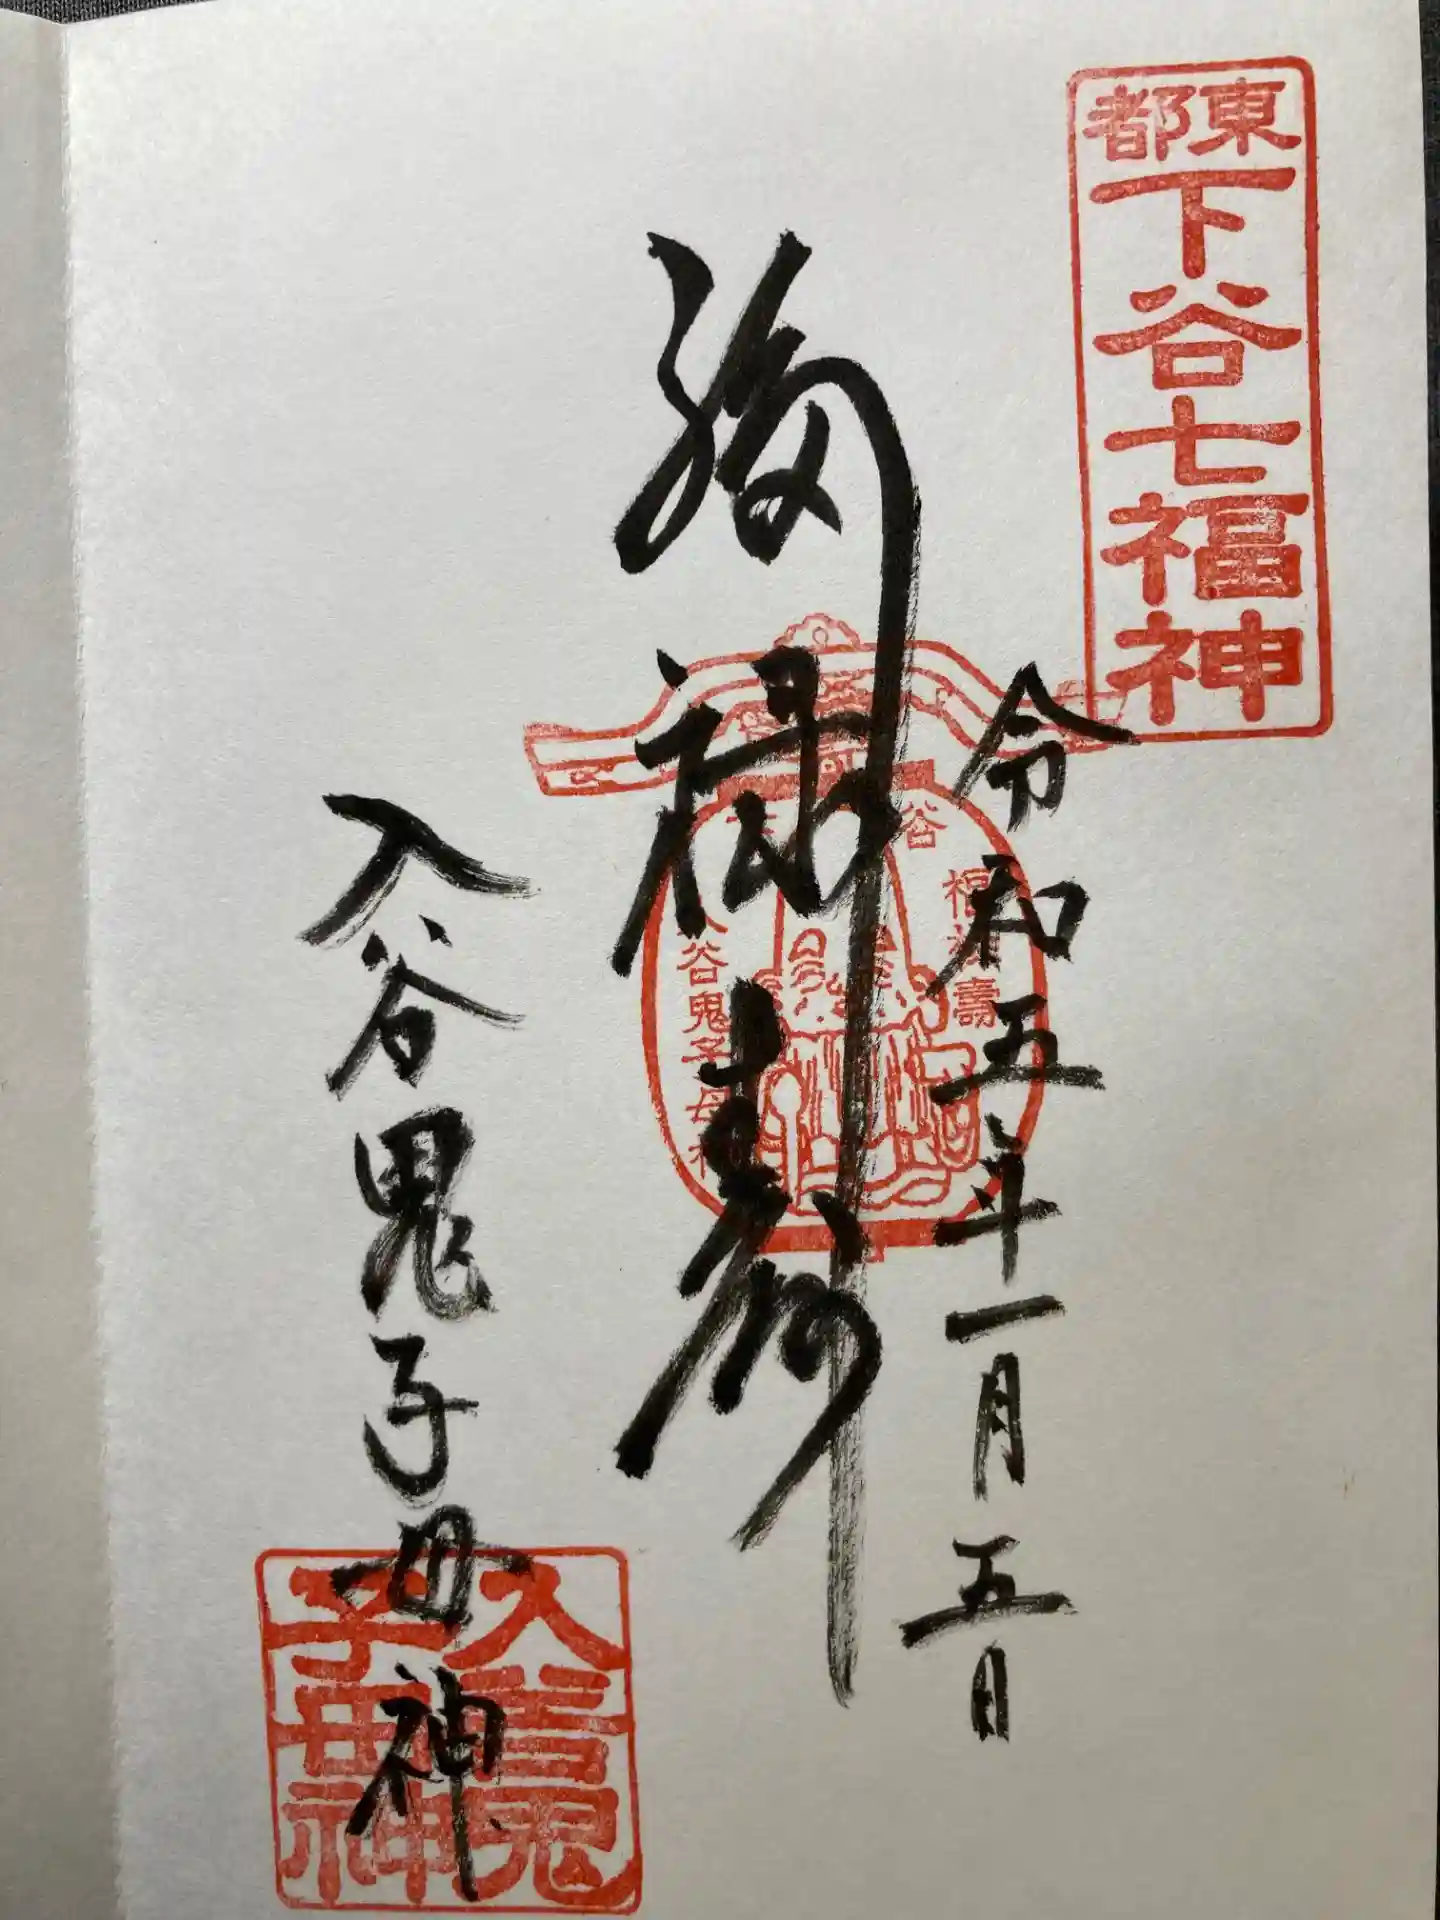 東都
下谷七福神
令和五年一月五日
福禄寿
谷
福禄壽
入谷鬼子母神
入谷鬼子母神
入谷鬼子母神